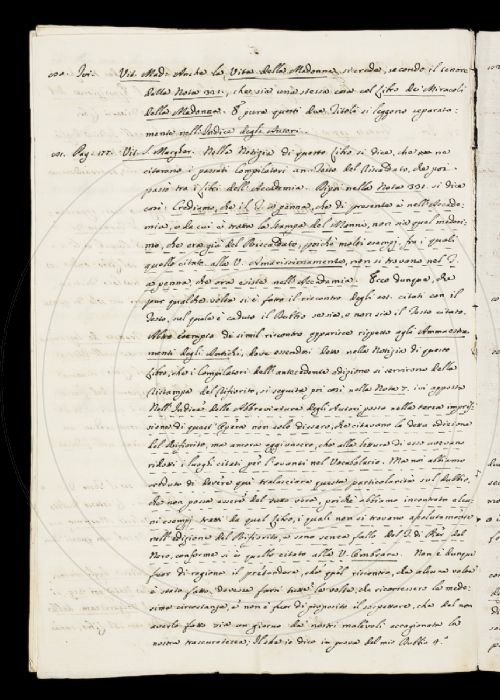 Ivi. Vit. Mad. Anche la Vita della Madonna si crede, secondo il tenore
della Nota 321., che sia una stessa cosa col Libro dei Miracoli
della Madonna. E pure questi due Titoli si leggono separata-
mente nell'Indice degli Autori.
Pag. 177. Vit. S. Margher. Nella Notizia di questo Libro si dice, che
citarono i passati Compilatori un Testo del Ricasdato, che poi
passò tra i Libri dell'Accademia. Bijn nella Nota 331. si dice
così: Crediamo, che il T. a penna, che di presente è nell'Accade-
mia, e da cui è tratta la stampa del Manni, non sia quel medesi-
mo, che era già del Ricasdato, poichè molti esempj, fra i quali
quello citato alla V. Amarissimamente, non si trovano nel T.
a penna, che ora esiste nell'Accademia. Ecco dunque, che
pur qualche volta si è fatto il riscontro degli es. citati con il
Testo, sul quale è caduto il Dubbio se sia, o non sia il Testo citato.
Altro esempio di simil riscontro apparisce rispetto agli Ammaestra-
menti degli Antichi, dove essendosi detto nella Notizia di questo
Libro, che i Compilatori dell'antecedente edizione si servirono della
Ristampa del Rifiorito, si seguita poi così nella Nota 7. ivi apposta
Nell'Indice delle Abbreviature degli Autori posto nella terza impres-
sione di quest'Opera non solo dissero, che citavano la detta edizione
del Rifiorito, ma ancora aggiunsero, che alla lettura di essa avevano
ridotti i luoghi citati per l'avanti nel Vocabolario. Ma noi abbiamo
creduto di dovere qui tralasciare questa particolarità sul dubbio,
che non possa avere del tutto vera, poichè abbiamo incontrato alcu-
ni esempj tratti da quel Libro, i quali non si trovano assolutamente
nell'edizione del Rifiorito, e sono senza fallo del T. di Pier del
Nero, conforme si è quello citato alla V. Combreare. Non è dunque
fuor di ragione il pretendere, che quel riscontro, che alcuna volta
è stato fatto, dovesse farsi tutte le volte, che ricorressero le mede-
sime circostanze, e non è fuor di proposito il sospettare, che dal non
averlo fatto sia un giorno da' nostri malevoli accagionata la
nostra trascuratezza; Il che io dico in prova del mio Dubbio 9.°